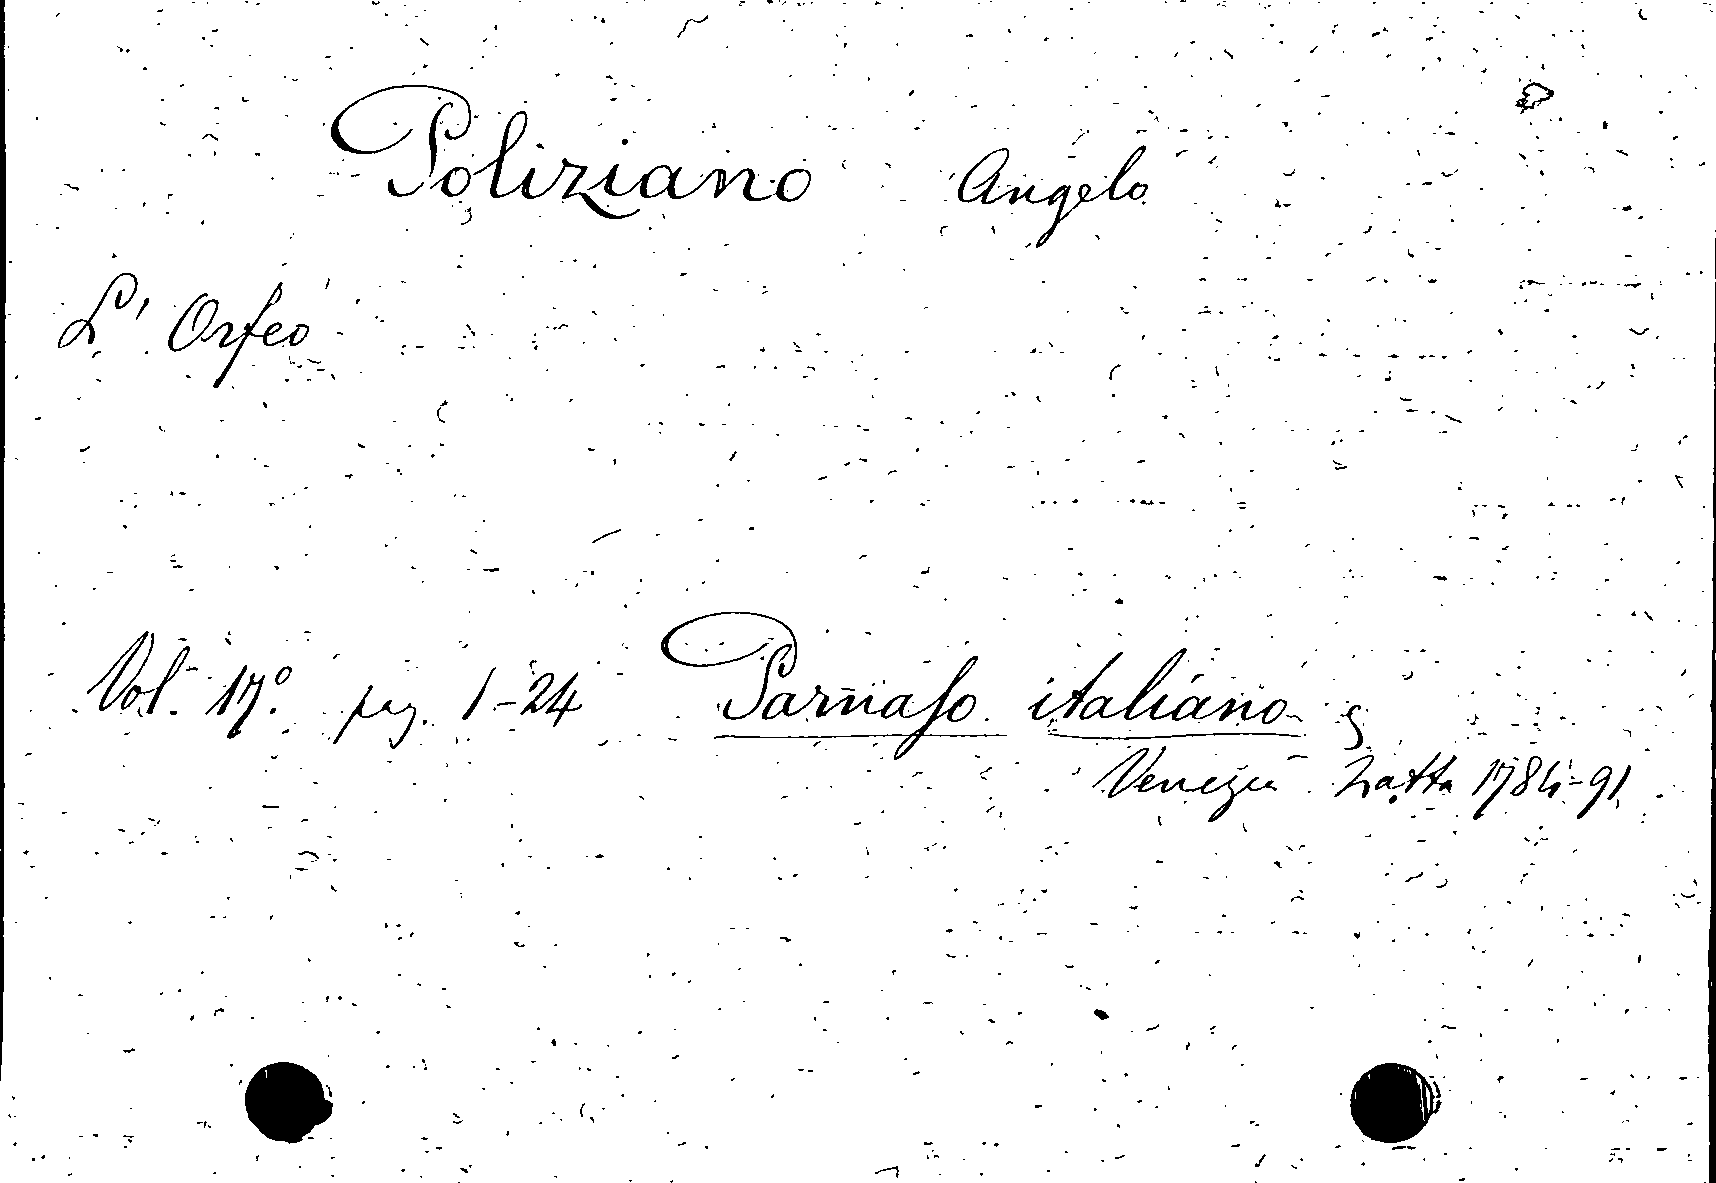 Poliziano Angelo
L' Orfeo
Vol. 17.º pag. 1-24 Parnaso italiano
Venezia Zatta 1784-91